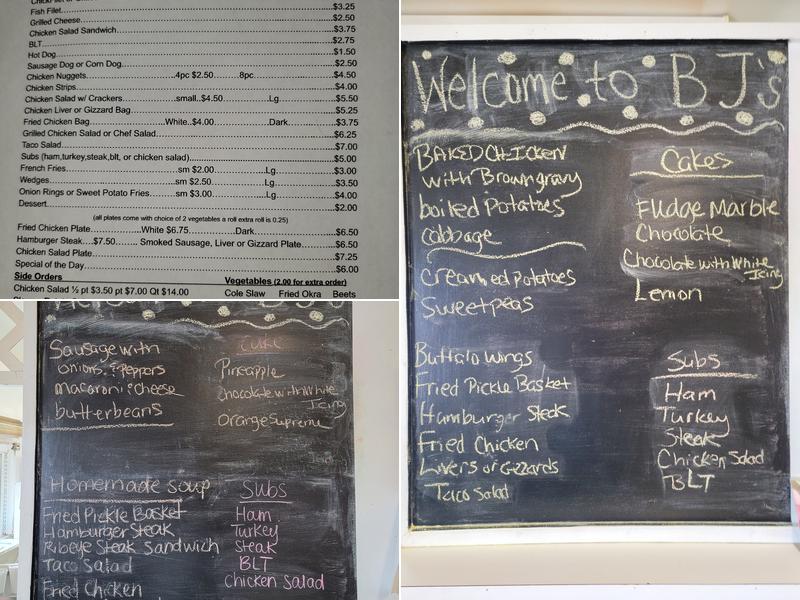 Fish Filet...$3.25
Grilled Cheese...$2.50
Chicken Salad Sandwich...$3.75
BLT...$2.75
Hot Dog...$1.50
Sausage Dog or Corn Dog...$2.50
Chicken Nuggets...4pc $2.50...8pc...$4.50
Chicken Strips...$4.00
Chicken Salad w/ Crackers...small..$4.50...Lg...$5.50
Chicken Liver or Gizzard Bag...$5.25
Fried Chicken Bag...White..$4.00...Dark...$3.75
Grilled Chicken Salad or Chef Salad...$6.25
Taco Salad...$7.00
Subs (ham,turkey,steak,blt, or chicken salad)...$5.00
French Fries...sm $2.00...Lg...$3.00
Wedges...sm $2.50...Lg...$3.50
Onion Rings or Sweet Potato Fries...sm $3.00...Lg...$4.00
Dessert...$2.00
(all plates come with choice of 2 vegetables a roll extra roll is 0.25)
Fried Chicken Plate...White $6.75...Dark...$6.50
Hamburger Steak...$7.50...Smoked Sausage, Liver or Gizzard Plate...$6.50
Chicken Salad Plate...$7.25
Special of the Day...$6.00
Side Orders
Vegetables (2.00 for extra order)
Chicken Salad ½ pt $3.50 pt $7.00 Qt $14.00
Cole Slaw Fried Okra Beets
Welcome to BJ's
BAKED CHICKEN
with Brown gravy
boiled Potatoes
cabbage
Creamed potatoes
Sweet peas
Cakes
Fudge Marble
Chocolate
Chocolate with White
Icing
Lemon
Buffalo wings
Fried Pickle Basket
Hamburger Steak
Fried Chicken
Livers or Gizzards
Taco Salad
Subs
Ham
Turkey
Steak
Chicken Salad
BLT
Sausage with
onions & Peppers
macaroni & cheese
butterbeans
Cake
Pineapple
Chocolate with White
Icing
Orange Supreme
Homemade soup
Fried Pickle Basket
Hamburger Steak
Ribeye Steak Sandwich
Taco Salad
Fried Chicken
Subs
Ham
Turkey
Steak
BLT
Chicken Salad